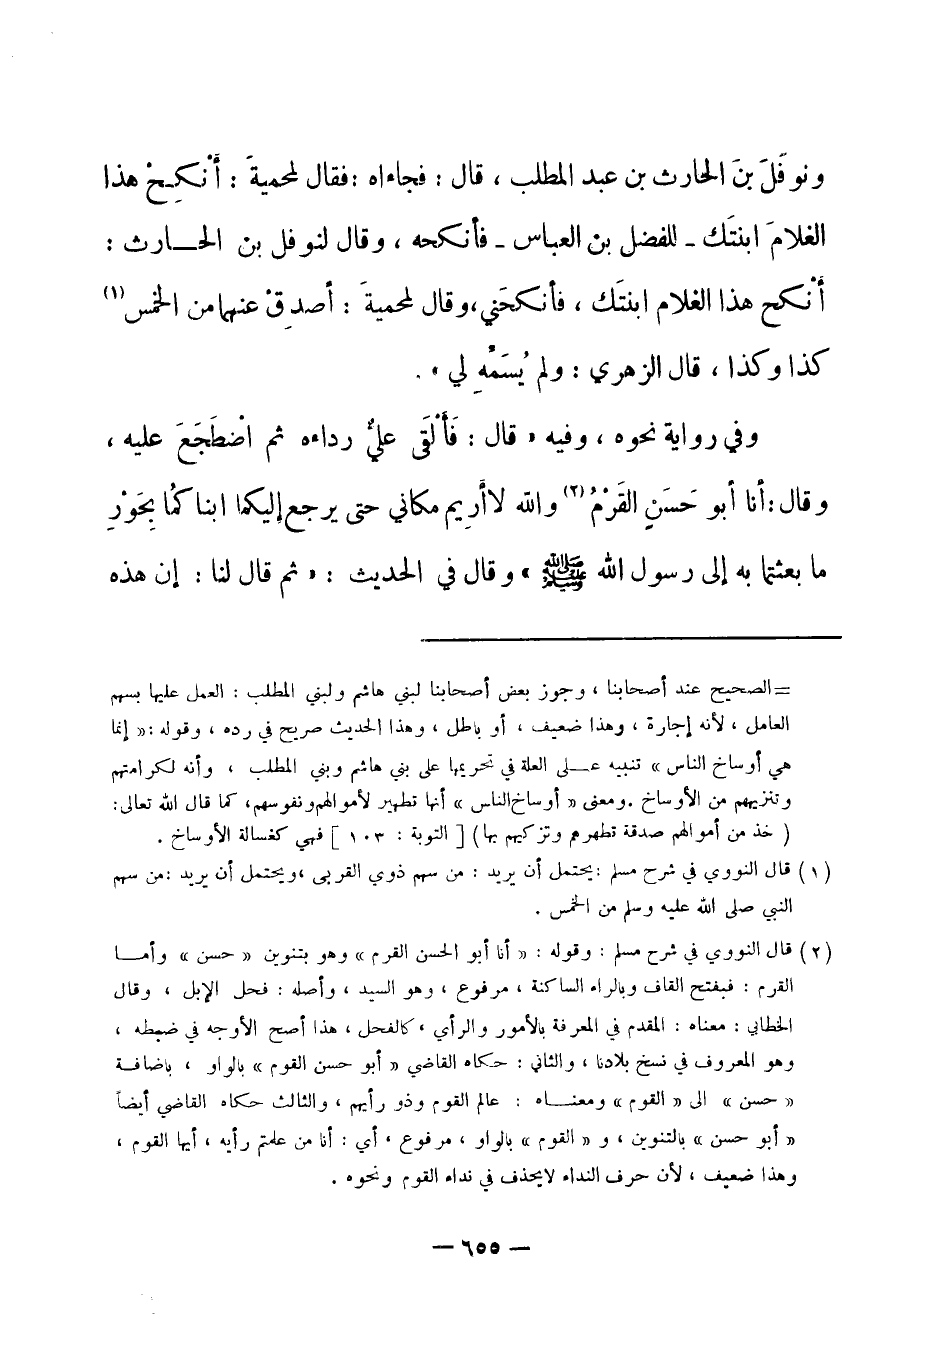 ونوفَلَ بنَ الحارث بن عبد المطلب ، قال : فجاءاه :فقال لمحميةَ : أَنْكِحْ هذا
الغلامَ ابنتَك ـ للفضل بن العباس ـ فأنكحه ، وقال لنوفل بن الحـــارث :
أَنْكح هذا الغلام ابنتَك ، فأنكحَني،وقال لمحميةَ : أصدِقْ عنهما من الخمس (١)
كذا وكذا ، قال الزهري : ولم يُسَمِّه لي » .
وفي رواية نحوه ، وفيه « قال : فَأَلْقَى عليٌّ رداءه ثم اضْطَجَعَ عليه ،
وقال:أنا أبو حَسَنٍ القَرْمُ (٢) والله لا أَرِيم مكاني حتى يرجع إليكما ابناكُما بِحَوْرِ
ما بعثتما به إلى رسول الله ﷺ » وقال في الحديث : « ثم قال لنا : إن هذه
= الصحيح عند أصحابنا ، وجوز بعض أصحابنا لبني هاشم ولبني المطلب : العمل عليها بسهم
العامل ، لأنه إجارة ، وهذا ضعيف ، أو باطل ، وهذا الحديث صريح في رده ، وقوله :« إنما
هي أوساخ الناس » تنبيه عـــلى العلة في تحريمها على بني هاشم وبني المطلب ، وأنه لكرامتهم
وتنزيههم من الأوساخ .ومعنى « أوساخ الناس » أنها تطهير لأموالهم ونفوسهم، كما قال الله تعالى:
( خذ من أموالهم صدقة تطهرهم وتزكيهم بها) [ التوبة : ١٠٣ ] فهي كغسالة الأوساخ .
(١) قال النووي في شرح مسلم :يحتمل أن يريد : من سهم ذوي القربى ،ويحتمل أن يريد :من سهم
النبي صلى الله عليه وسلم من الخمس .
(٢) قال النووي في شرح مسلم : وقوله : « أنا أبو الحسن القرم » وهو بتنوين « حسن » وأمـــا
القرم : فبفتح القاف وبالراء الساكنة ، مرفوع ، وهو السيد ، وأصله : فحل الإبل ، وقال
الخطابي : معناه : المقدم في المعرفة بالأمور والرأي ، كالفحل ، هذا أصح الأوجه في ضبطه ،
وهو المعروف في نسخ بلادنا ، والثاني : حكاه القاضي « أبو حسن القوم » بالواو ، باضافـــة
« حسن » الى « القوم » ومعنـــاه : عالم القوم وذو رأيهم ، والثالث حكاه القاضي أيضاً
« أبو حسن » بالتنوين ، و « القوم » بالواو ، مرفوع ، أي : أنا من علمتم رأيه ، أيها القوم ،
وهذا ضعيف ، لأن حرف النداء لايحذف في نداء القوم ونحوه .
— ٦٥٥ —